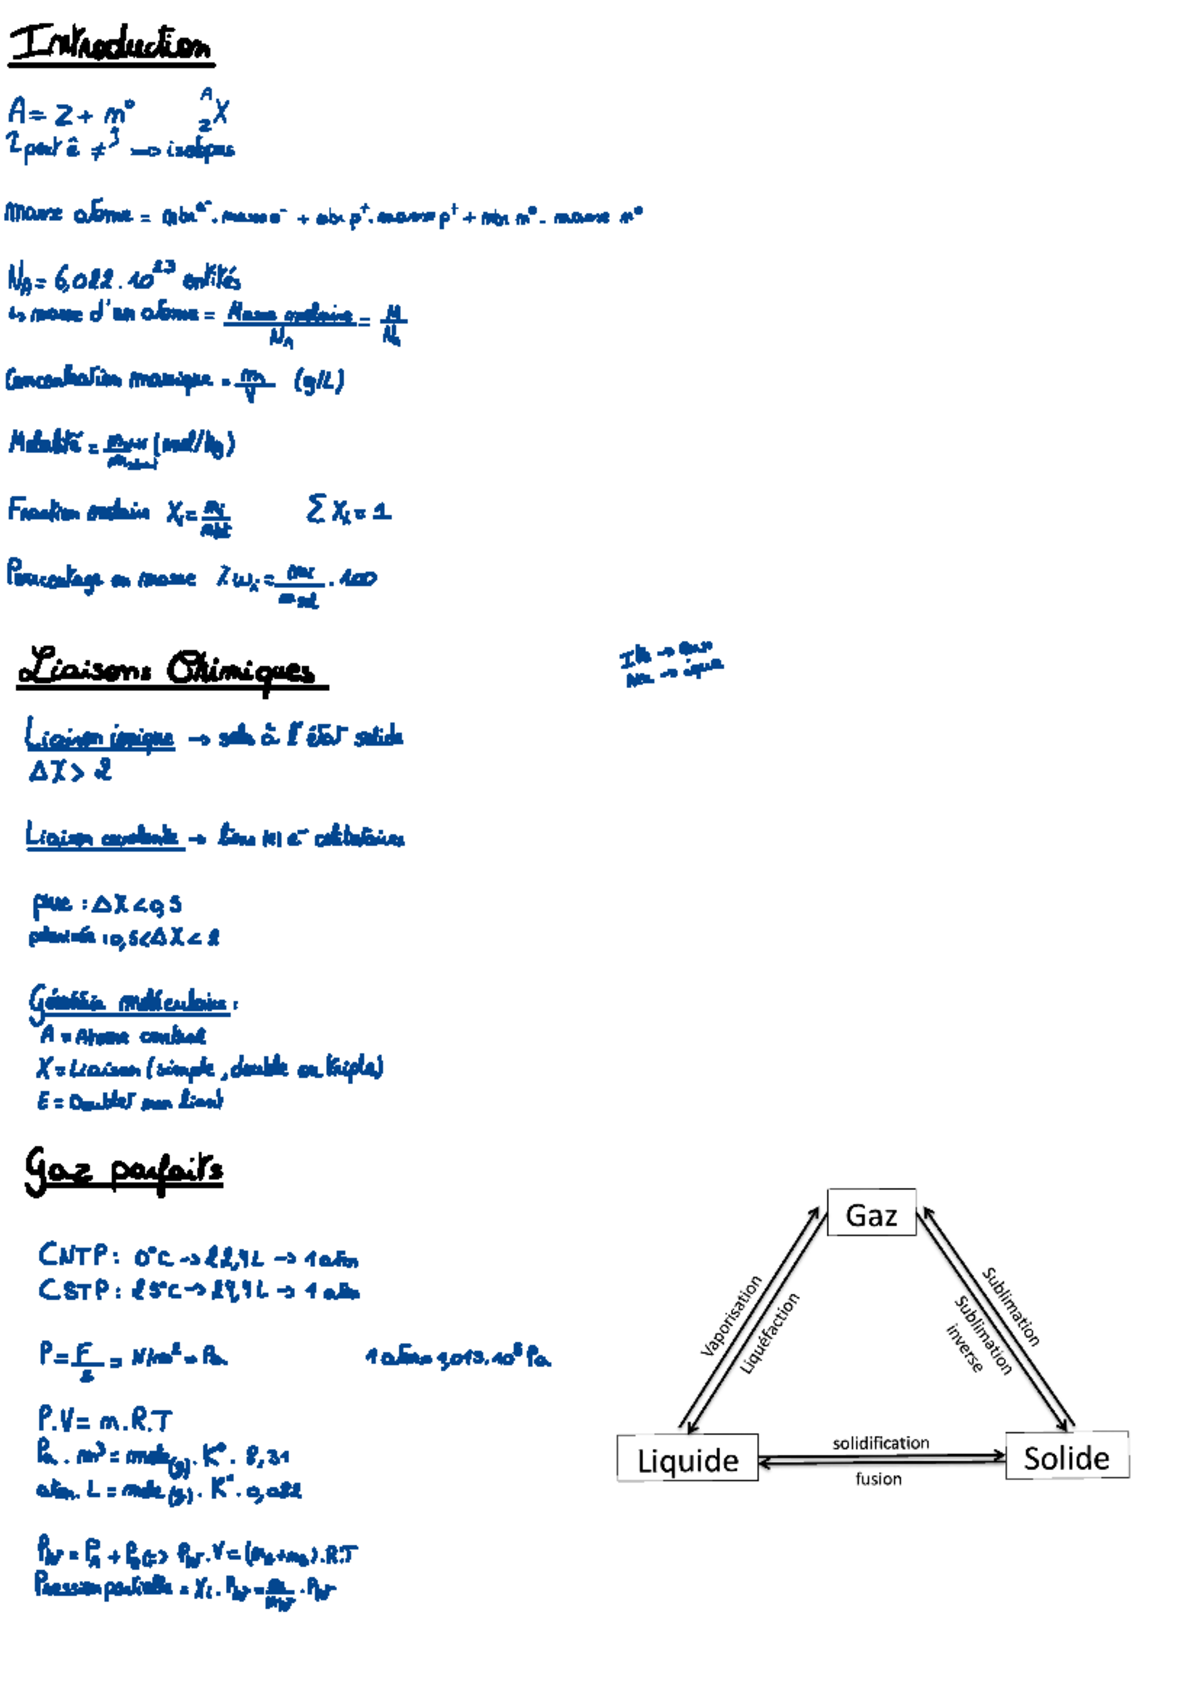 Introduction
A = Z + n° A Z X
Z peut ê ≠ → isotopes
masse atome = nbr e⁻ . masse e⁻ + nbr p⁺ . masse p⁺ + nbr n° . masse n°
N_A = 6,022 . 10²³ entités
↳ masse d'un atome = Masse molaire / N_A = M / N_A
Concentration massique = m / V (g/L)
Molalité = (mol/kg)
Fraction molaire Xi = ni / ntot Σ Xi = 1
Pourcentage en masse % wi = mi / m sol . 100
Liaisons Chimiques
Ite → eux
→ ique
Liaison ionique → sels à l'état solide
ΔX > 2
Liaison covalente → e⁻ célibataires
pure : ΔX < 0,5
polarisée : 0,5 < ΔX < 2
Géométrie moléculaire :
A = Atome central
X = Liaison (simple, double ou triple)
E = Doublet non liant
Gaz parfaits
CNTP : 0°C → 22,4 L → 1 atm
CSTP : 25°C → 24,4 L → 1 atm
P = F / S = N/m² = Pa 1 atm = 1,013.10⁵ Pa
P.V = n.R.T
Pa . m³ = mole (g) . K° . 8,31
atm . L = mole (g) . K° . 0,082
Ptot = P_A + P_B <=> Ptot . V = (n_A + n_B) . R.T
Pression partielle = Xi . Ptot = n / ntot . Ptot
Gaz
Vaporisation
Liquéfaction
Sublimation
Sublimation inverse
Liquide
solidification
fusion
Solide